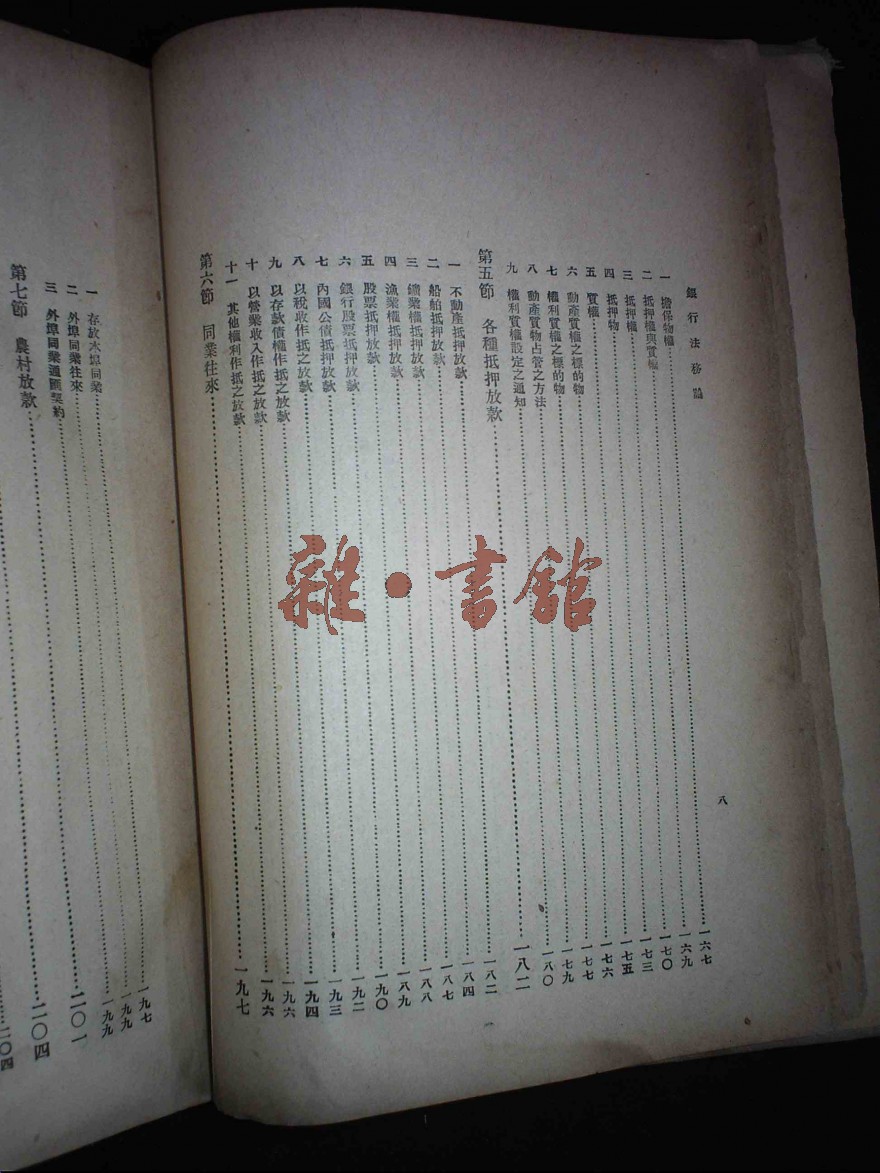 銀行法務論
八
一 擔保物權……一六七
二 抵押權與質權……一六九
三 抵押權……一七〇
四 抵押物……一七三
五 質權……一七五
六 動產質權之標的物……一七六
七 權利質權之標的物……一七七
八 動產質物占管之方法……一七九
九 權利質權設定之通知……一八〇
第五節 各種抵押放款……一八二
一 不動產抵押放款……一八二
二 船舶抵押放款……一八四
三 鑛業權抵押放款……一八七
四 漁業權抵押放款……一八八
五 股票抵押放款……一八九
六 銀行股票抵押放款……一九〇
七 內國公債抵押放款……一九二
八 以稅收作抵之放款……一九三
九 以存款債權作抵之放款……一九四
十 以營業收入作抵之放款……一九六
十一 其他權利作抵之放款……一九六
第六節 同業往來……一九七
一 存放本埠同業……一九七
二 外埠同業往來……一九九
三 外埠同業通匯契約……一九九
第七節 農村放款……二〇一
二〇四
二〇四
雜·書館